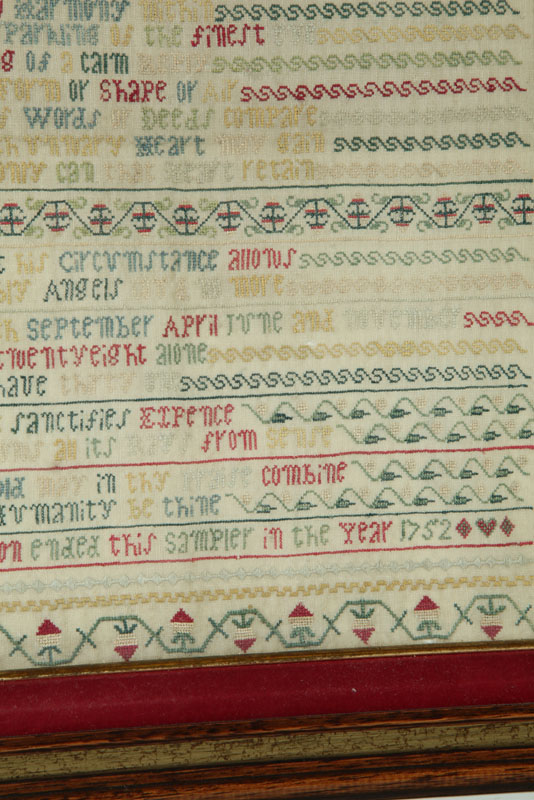 Harmony within
of the finest
g of a calm
form or shape or as
Words or Deeds compare
Heart may gain
can that heart retain
his Circumstance allows
Angels no more
th September April June and November
twentyeight alone
have thirty one
sanctifies Expence
its Rays from sense
may in thy combine
Humanity be thine
on ended this sampler in the Year 1752